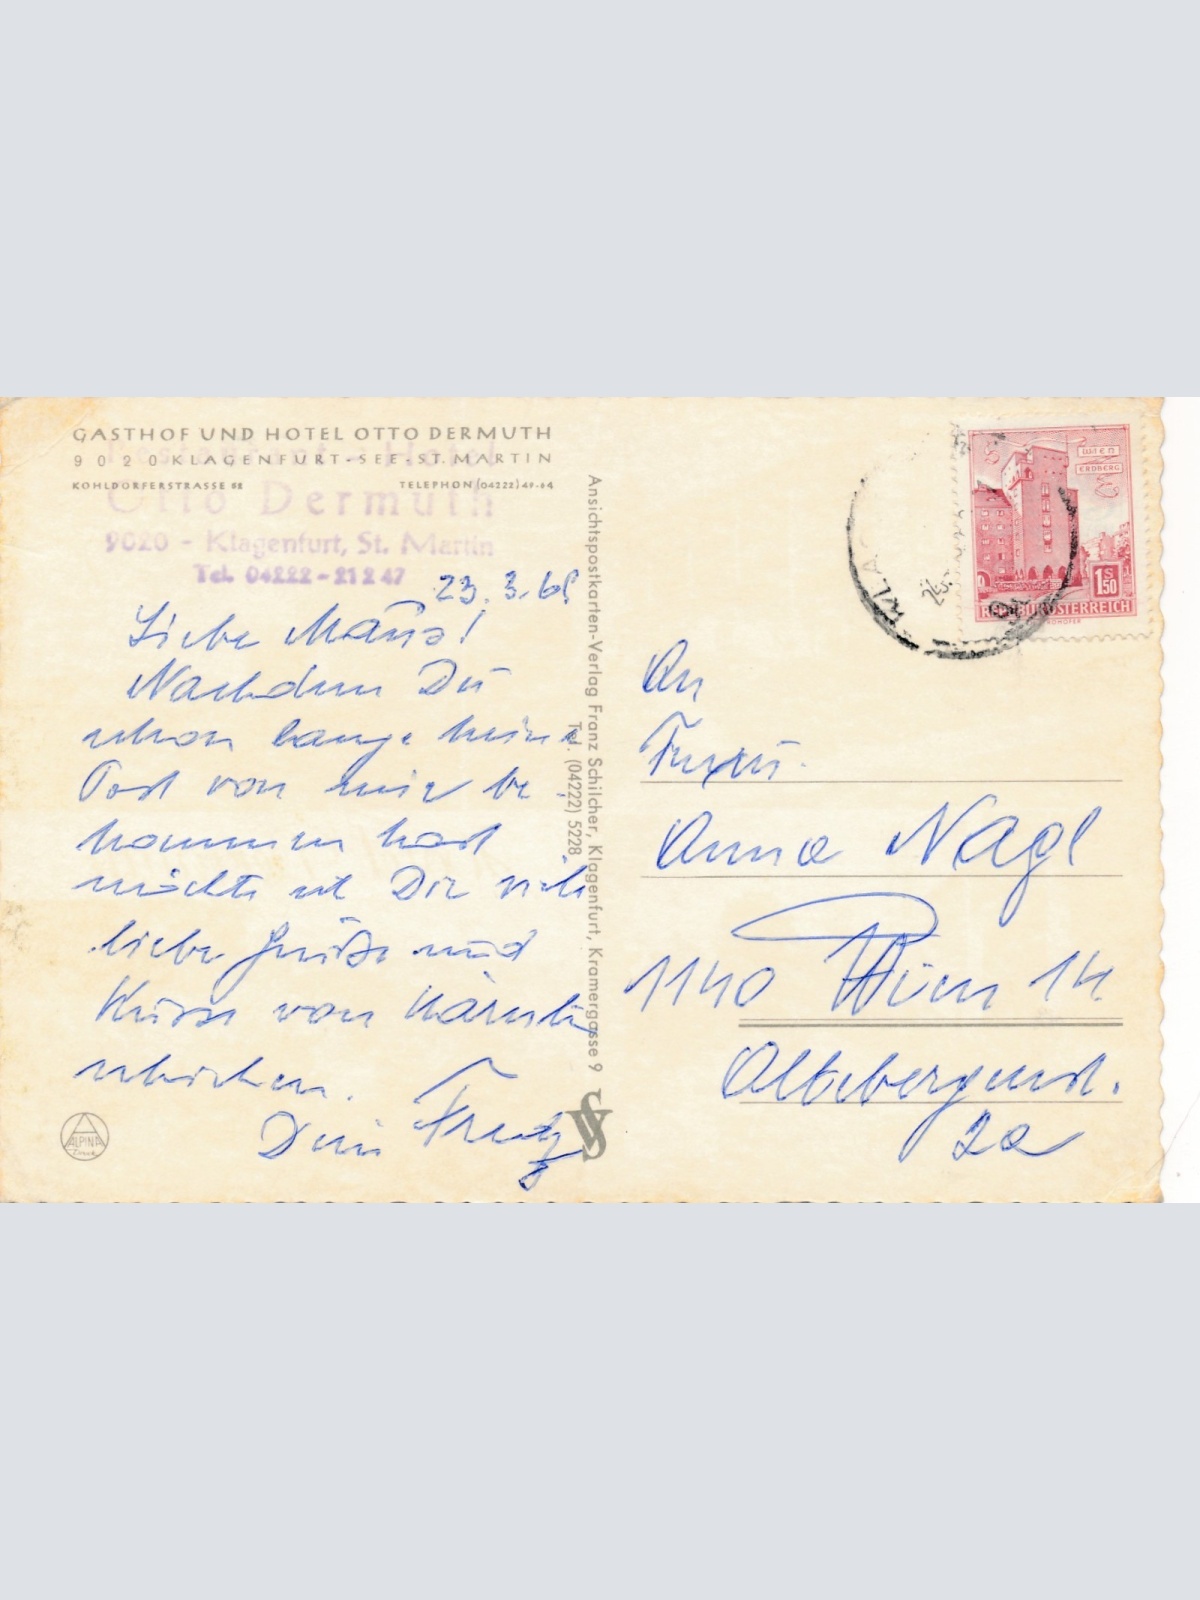 GASTHOF UND HOTEL OTTO DERMUTH
9020 KLAGENFURT-SEE-ST. MARTIN
KOHLDORFERSTRASSE 68 TELEPHON (04222) 49-64
Otto Dermuth
9020 - Klagenfurt, St. Martin
Tel. 04222 - 21 2 47
23. 3. 68
Liebe Maus!
Nachdem Du
schon lange keine
Post von mir be-
kommen hast
möchte ich Dir viele
liebe Grüße und
Küsse von Kärnten
schicken.
Dein Franz
ALPINA
Druck
Ansichtspostkarten-Verlag Franz Schilcher, Klagenfurt, Kramergasse 9
Tel. (04222) 5228
WIEN
ERDBERG
1 S 50
REPUBLIK ÖSTERREICH
An
Frau
Anna Nagl
1140 Wien 14.
2a